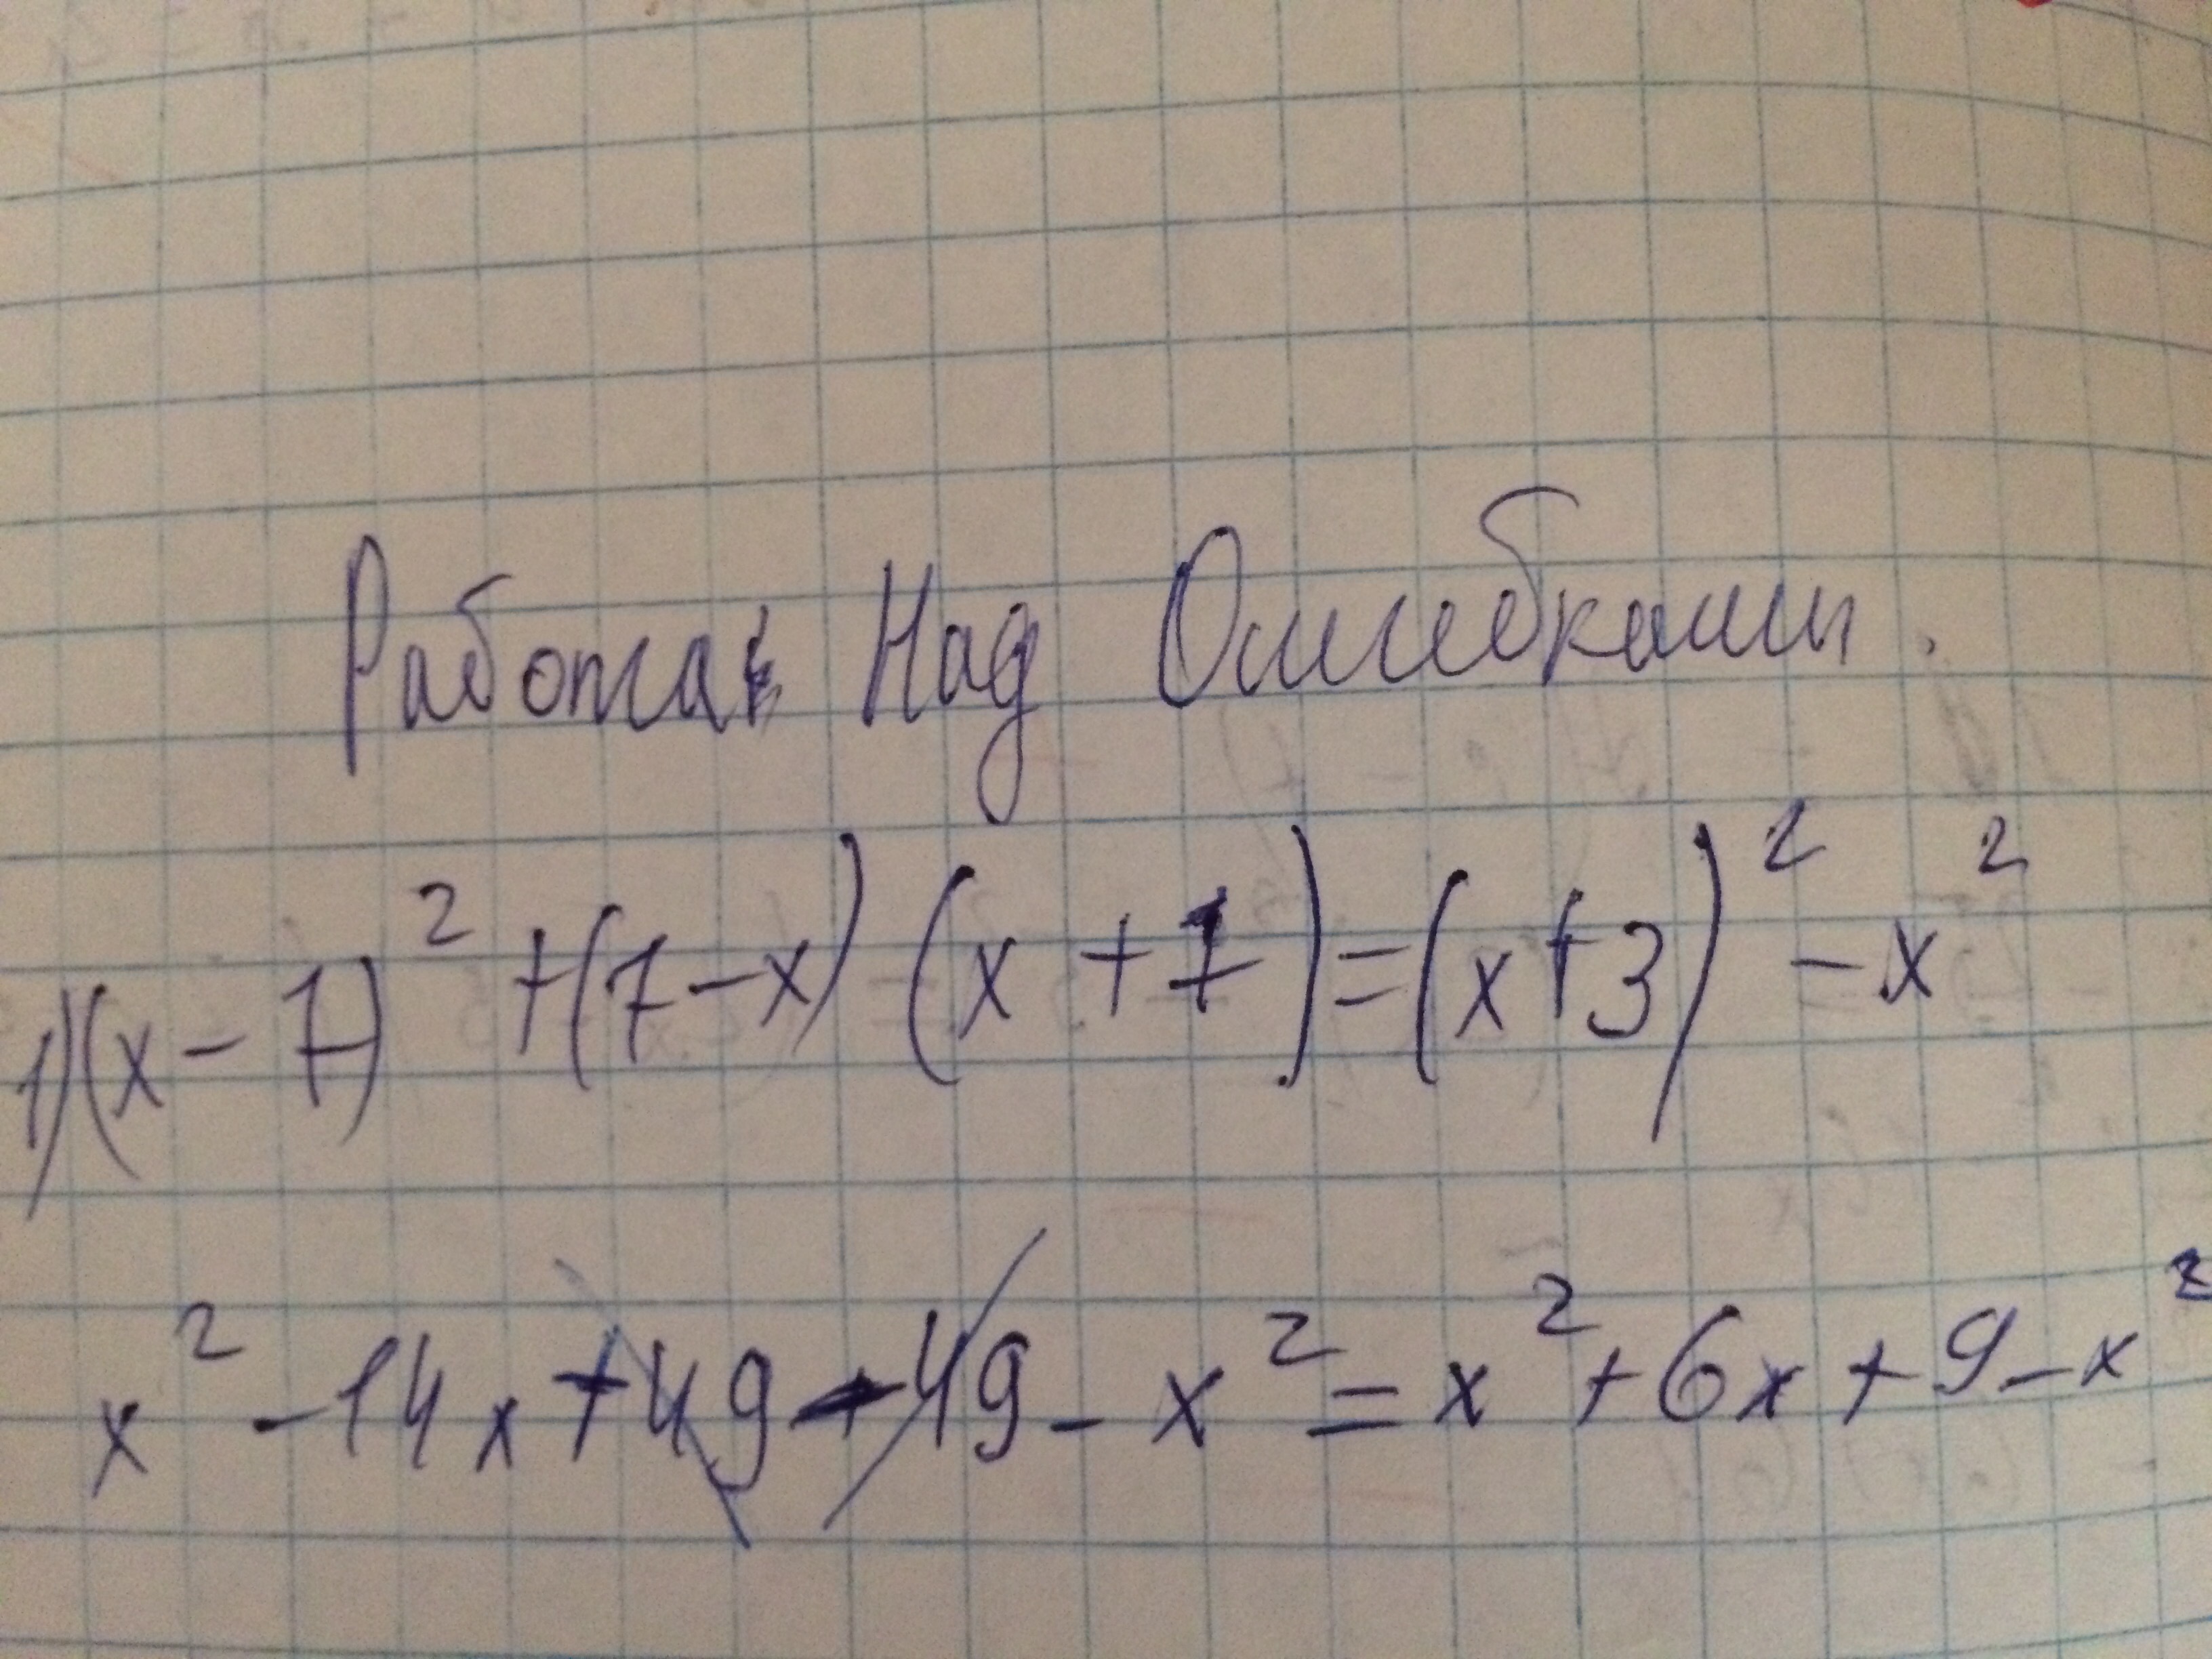 Работа Над Ошибками.
1)(x-7)²+(7-x)(x+7)=(x+3)²-x²
x²-14x+49-49-x²=x²+6x+9-x²